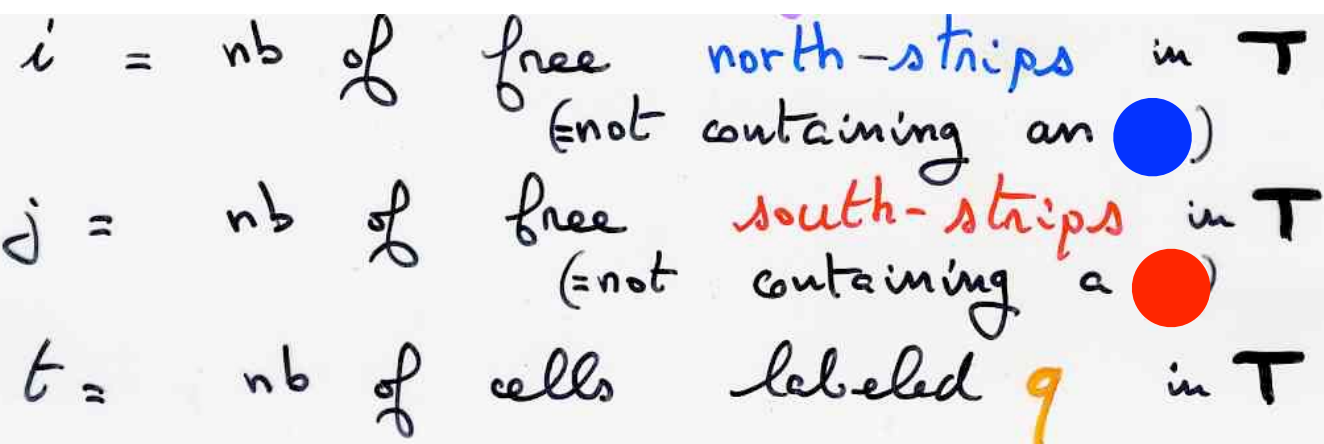 i = nb of free north-strips in T
(=not containing an )
j = nb of free south-strips in T
(=not containing a )
t = nb of cells labeled q in T